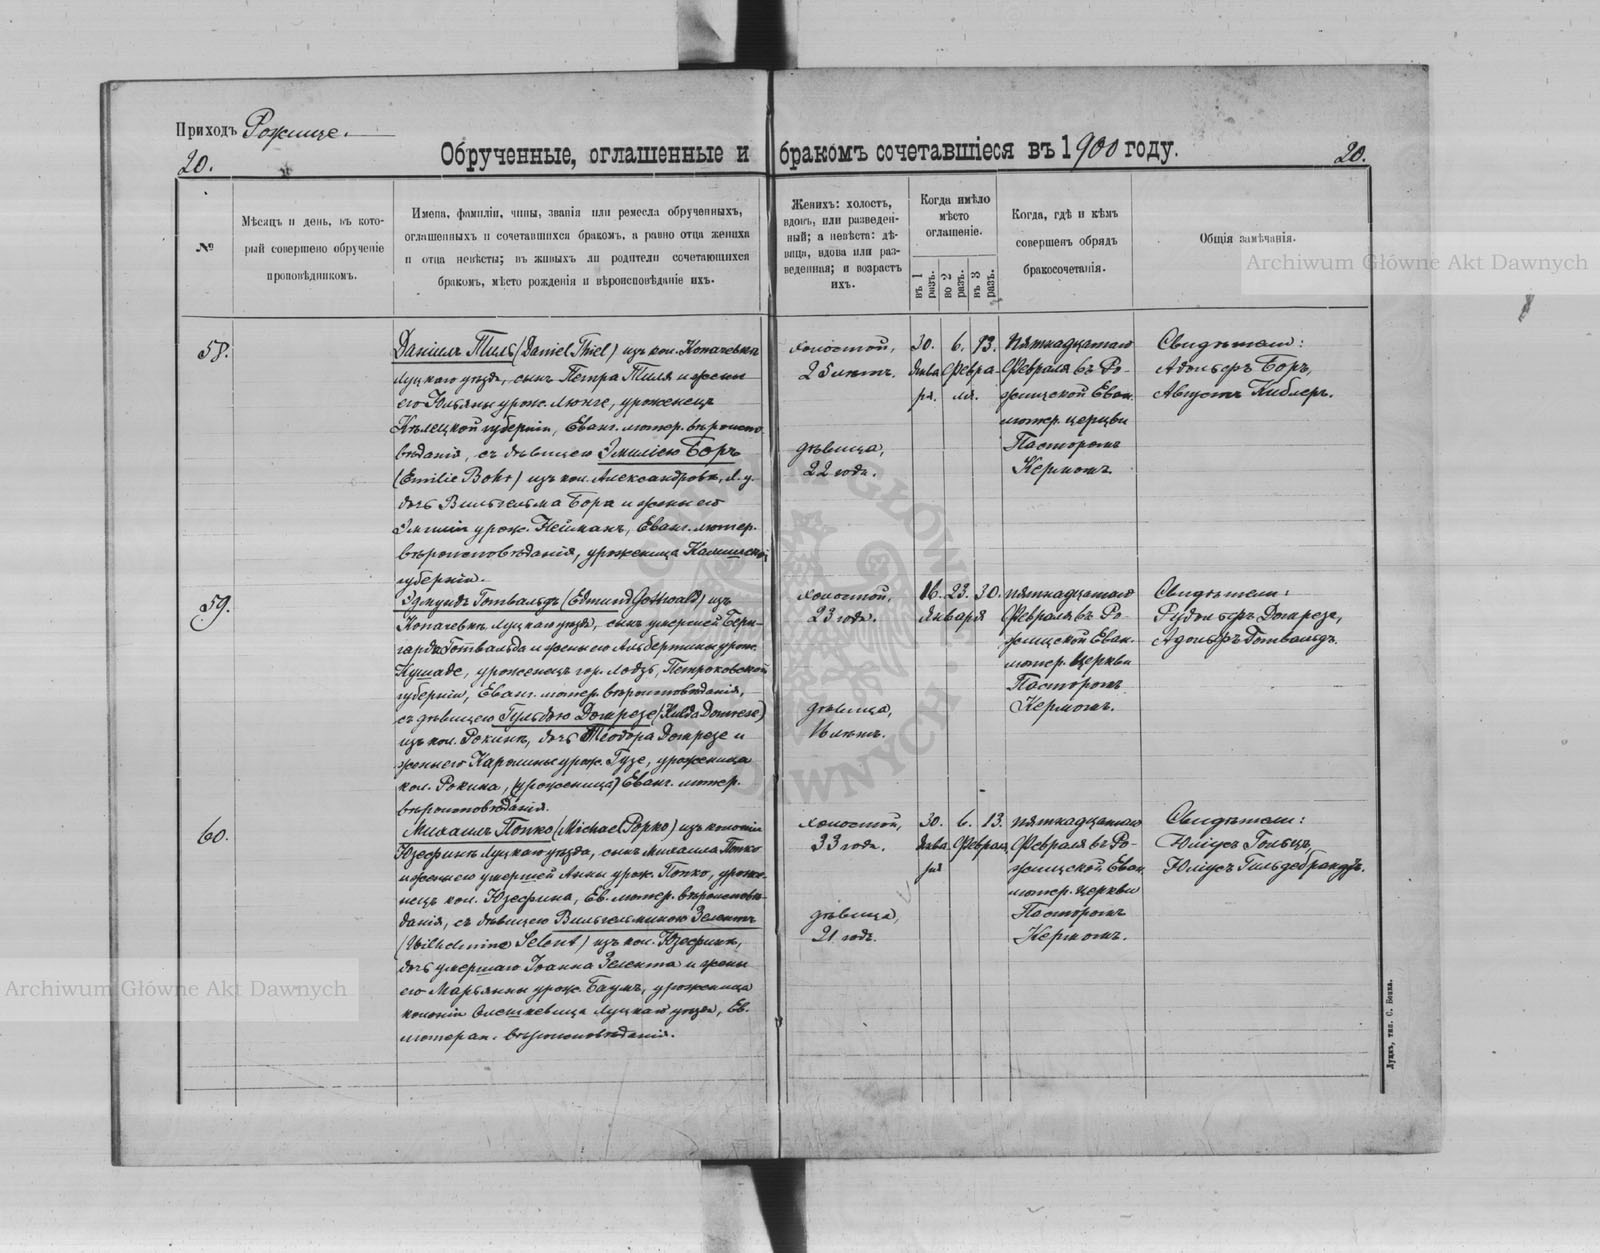 Приходъ Рожище.
20.
Обрученные, оглашенные и бракомъ сочетавшіеся въ 1900 году.
20.
№
Мѣсяцъ и день, въ кото-
рый совершено обрученіе
проповѣдникомъ.
Имена, фамиліи, чины, званія или ремесла обрученныхъ,
оглашенныхъ и сочетавшихся бракомъ, а равно отца жениха
и отца невѣсты; въ живыхъ ли родители сочетающихся
бракомъ, мѣсто рожденія и вѣроисповѣданіе ихъ.
Женихъ: холостъ,
вдовъ, или разведен-
ный; а невѣста: дѣ-
вица, вдова или раз-
веденная; и возрастъ
ихъ.
Когда имѣло
мѣсто
оглашеніе.
въ 1 разъ.
во 2 разъ.
въ 3 разъ.
Когда, гдѣ и кѣмъ
совершенъ обрядъ
бракосочетанія.
Общія замѣчанія.
Archiwum Główne Akt Dawnych
58.
Даніилъ Тиль (Daniel Thiel) изъ кол. Копачевка
Луцкаго уѣзда, сынъ Петра Тиля и жены
его Юльяны урож. Люнге, уроженецъ
Кѣлецкой губерніи, Еванг. лютер. вѣроиспо-
вѣданія, съ дѣвицею Эмиліею Боръ
(Emilie Bohr) изъ кол. Александровка, Л. у.
дочь Вильгельма Бора и жены его
Эмиліи урож. Нейманъ, Еванг. лютер.
вѣроисповѣданія, уроженица Калишской
губерніи.
холостой,
25 лѣтъ.
дѣвица,
22 года.
30. 6. 13.
Янва Февра-
ря. ля.
пятнадцатаго
Февраля въ Ро-
жищской Еван.
лютер. церкви
Пасторомъ
Кермомъ.
Свидѣтели:
Адольфъ Боръ,
Августъ Киблеръ.
59.
Эдмундъ Готвальдъ (Edmund Gottwald) изъ
Копачевки Луцкаго уѣзда, сынъ умершей Берн-
гарда Готвальда и жены его Альбертины урож.
Кушаде, уроженецъ гор. Лодзь, Петроковской
губерніи, Еванг. лютер. вѣроисповѣданія,
съ дѣвицею Гульдою Домрезе (Hulda Domrese)
изъ кол. Рокини, дочь Теодора Домрезе и
жены его Каролины урож. Гузе, уроженица
кол. Рокина, (уроженица) Еванг. лютер.
вѣроисповѣданія.
холостой,
23 года.
дѣвица,
16 лѣтъ.
16. 23. 30.
Января
пятнадцатаго
Февраля въ Ро-
жищской Еван.
лютер. Церкви
Пасторомъ
Кермомъ.
Свидѣтели:
Рудольфъ Домрезе,
Адольфъ Готвальдъ.
60.
Михаилъ Попко (Michael Popko) изъ колоніи
Юзефинъ Луцкаго уѣзда, сынъ Михаила Попко
и жены его умершей Анны урож. Попко, уроже-
нецъ кол. Юзефина, Ев. лютер. вѣроисповѣ-
данія, съ дѣвицею Вильгельминою Зелентъ
(Wilhelmine Selent) изъ кол. Юзефинъ,
дочь умершаго Іоанна Зелента и жены
его Марьянны урож. Баумъ, уроженица
колоніи Олешкевица Луцкаго уѣзда, Ев.
лютеран. вѣроисповѣданія.
холостой,
33 года.
дѣвица,
21 годъ.
30. 6. 13.
Янва Феврал
ря
пятнадцатаго
Февраля въ Ро-
жищской Еван.
лютер. церкви
Пасторомъ
Кермомъ.
Свидѣтели:
Юліусъ Гольцъ,
Юліусъ Гильдебрандтъ.
Archiwum Główne Akt Dawnych
Луцкъ, тип. С. Бокка.